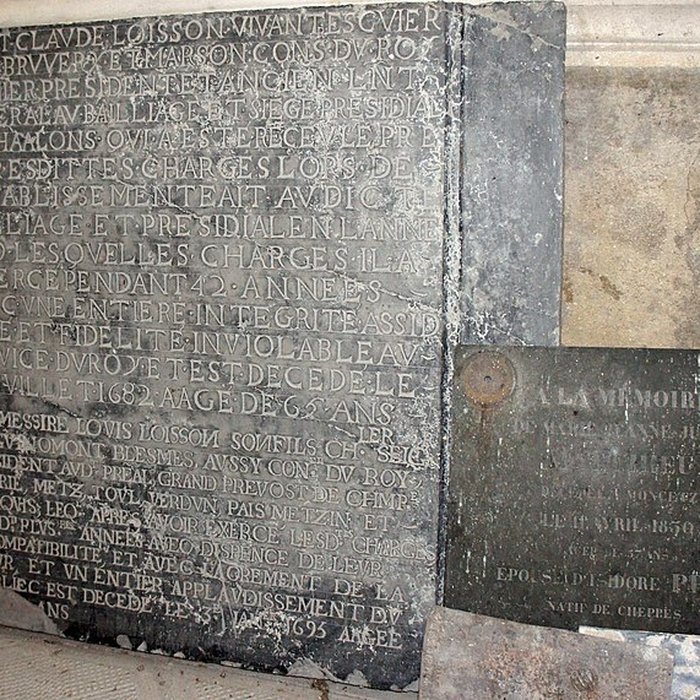 T CLAUDE LOISSON VIVANT ESCVIER
BRVVERY ET MARSON CONS DV ROY
IER PRESIDENT ET ANCIEN LNT
ERAL AV BAILLIAGE ET SIEGE PRESIDIAL
HAALONS QVI A ESTE RECEV LE PRE
ESDITTES CHARGES LORS DE
ABLISSEMENT FAIT AVDICT
LIAGE ET PRESIDIAL EN LANNE
LESQVELLES CHARGES IL A
ERCE PENDANT 42 ANNEES
C VNE ENTIERE INTEGRITE ASSID
E ET FIDELITE INVIOLABLE AV
VICE DV ROY ET EST DECEDE LE
VILLET 1682 AAGE DE 65 ANS
MESSIRE LOVIS LOISSON SON FILS CH LIER SEIG
NOMONT BLESMES, AVSSY CON DV ROY
SIDENT AVD PREAL GRAND PREVOST DE CHMP
RIE METZ TOVL VERDVN, PAIS METZIN ET
QVIS, LEQ APRES AVOIR EXERCE LESD CHARGES
PLVS ANNEES AVEC DISPENCE DE LEVR
OMPATIBILITE ET AVEC LAGREMENT DE LA
VR ET VN ENTIER APPLAVDISSEMENT DV
BLIEC EST DECEDE LE 3 1693 AAGEE
ANS
A LA MÉMOIRE
DE MARIE JEANNE
DÉCÉDÉE À MONCE
LE 11 AVRIL 1856
ANS
ÉPOUSE D'ISIDORE
NATIF DE CHEPPES